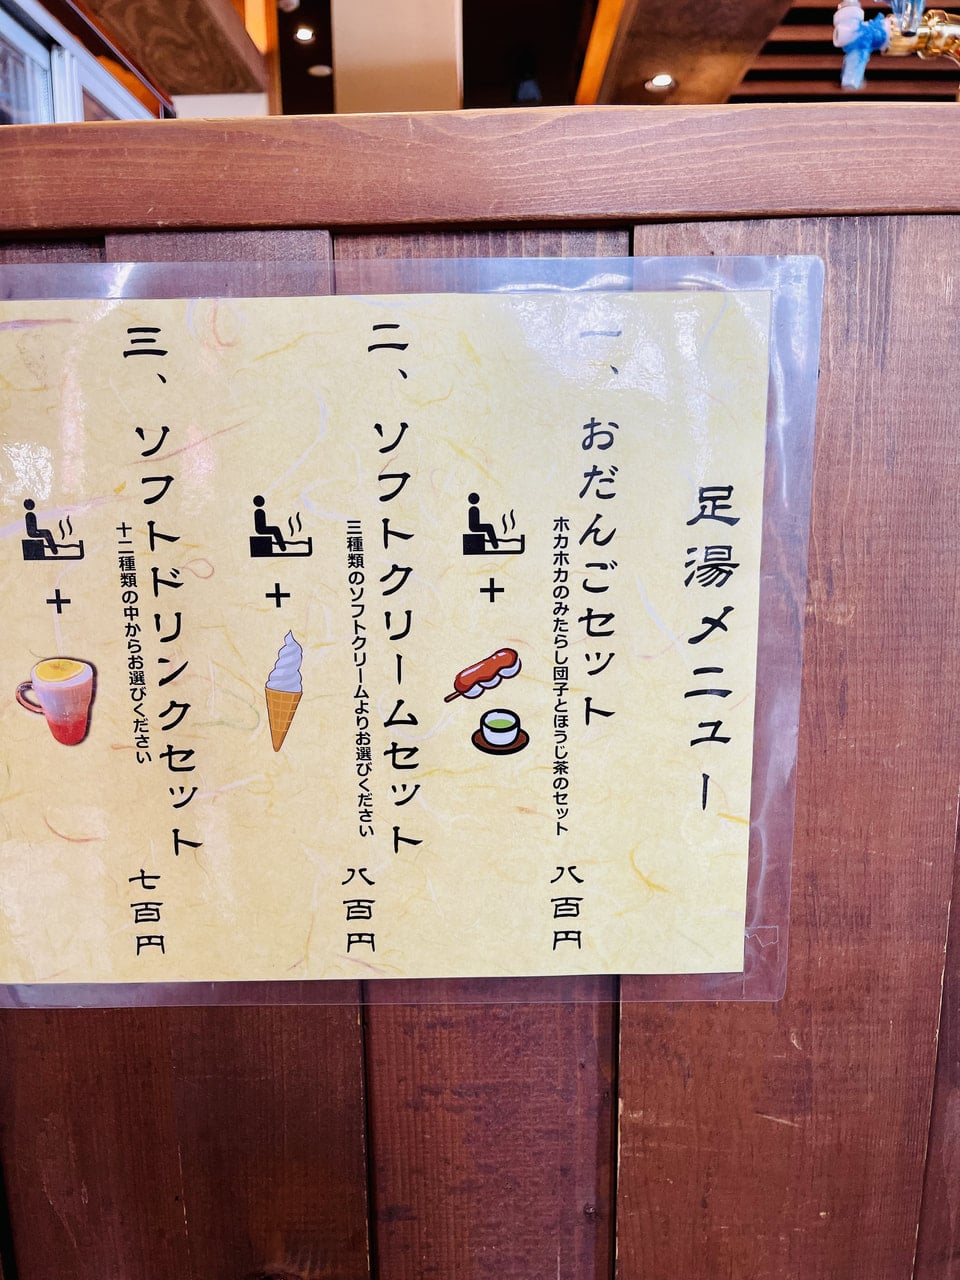 足湯メニュー
一、おだんごセット
ホカホカのみたらし団子とほうじ茶のセット
八百円
二、ソフトクリームセット
三種類のソフトクリームよりお選びください
八百円
三、ソフトドリンクセット
十二種類の中からお選びください
七百円